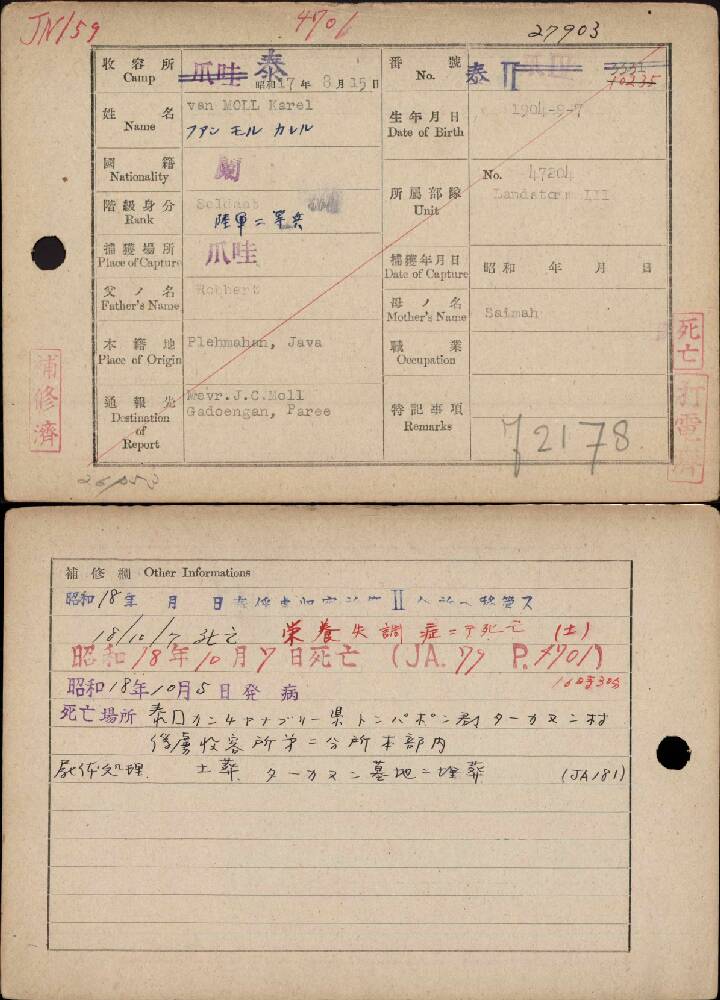 JN159
4701
27903
收容所 Camp 爪哇 泰 昭和17年8月15日
番號 No. 泰 II 爪哇 3331 10235
姓名 Name van MOLL Karel
フアン モル カレル
生年月日 Date of Birth 1904-9-7
國籍 Nationality 蘭
所屬部隊 Unit No. 47204
Landstorm III
階級身分 Rank Soldaat
陸軍二等兵
捕獲場所 Place of Capture 爪哇
捕獲年月日 Date of Capture 昭和 年 月 日
父ノ名 Father's Name Robbert
母ノ名 Mother's Name Saimah
本籍地 Place of Origin Plehmahan, Java
職業 Occupation
通報先 Destination of Report Mevr.J.C.Moll
Gadoengan, Paree
特記事項 Remarks
72178
補修濟
死亡
打電濟
補修欄 Other Informations
昭和18年 月 日泰俘虜收容所第II分所ヘ移管ス
18/10/7 死亡 栄養失調症ニテ死亡 (土)
昭和18年10月7日死亡 (JA.79 P.4701)
昭和18年10月5日発病
16時30分
死亡場所 泰国カンチヤナブリー県 郡ターカヌン村
俘虜收容所第二分所本部内
屍体処理 土葬 ターカヌン墓地ニ埋葬 (JA181)